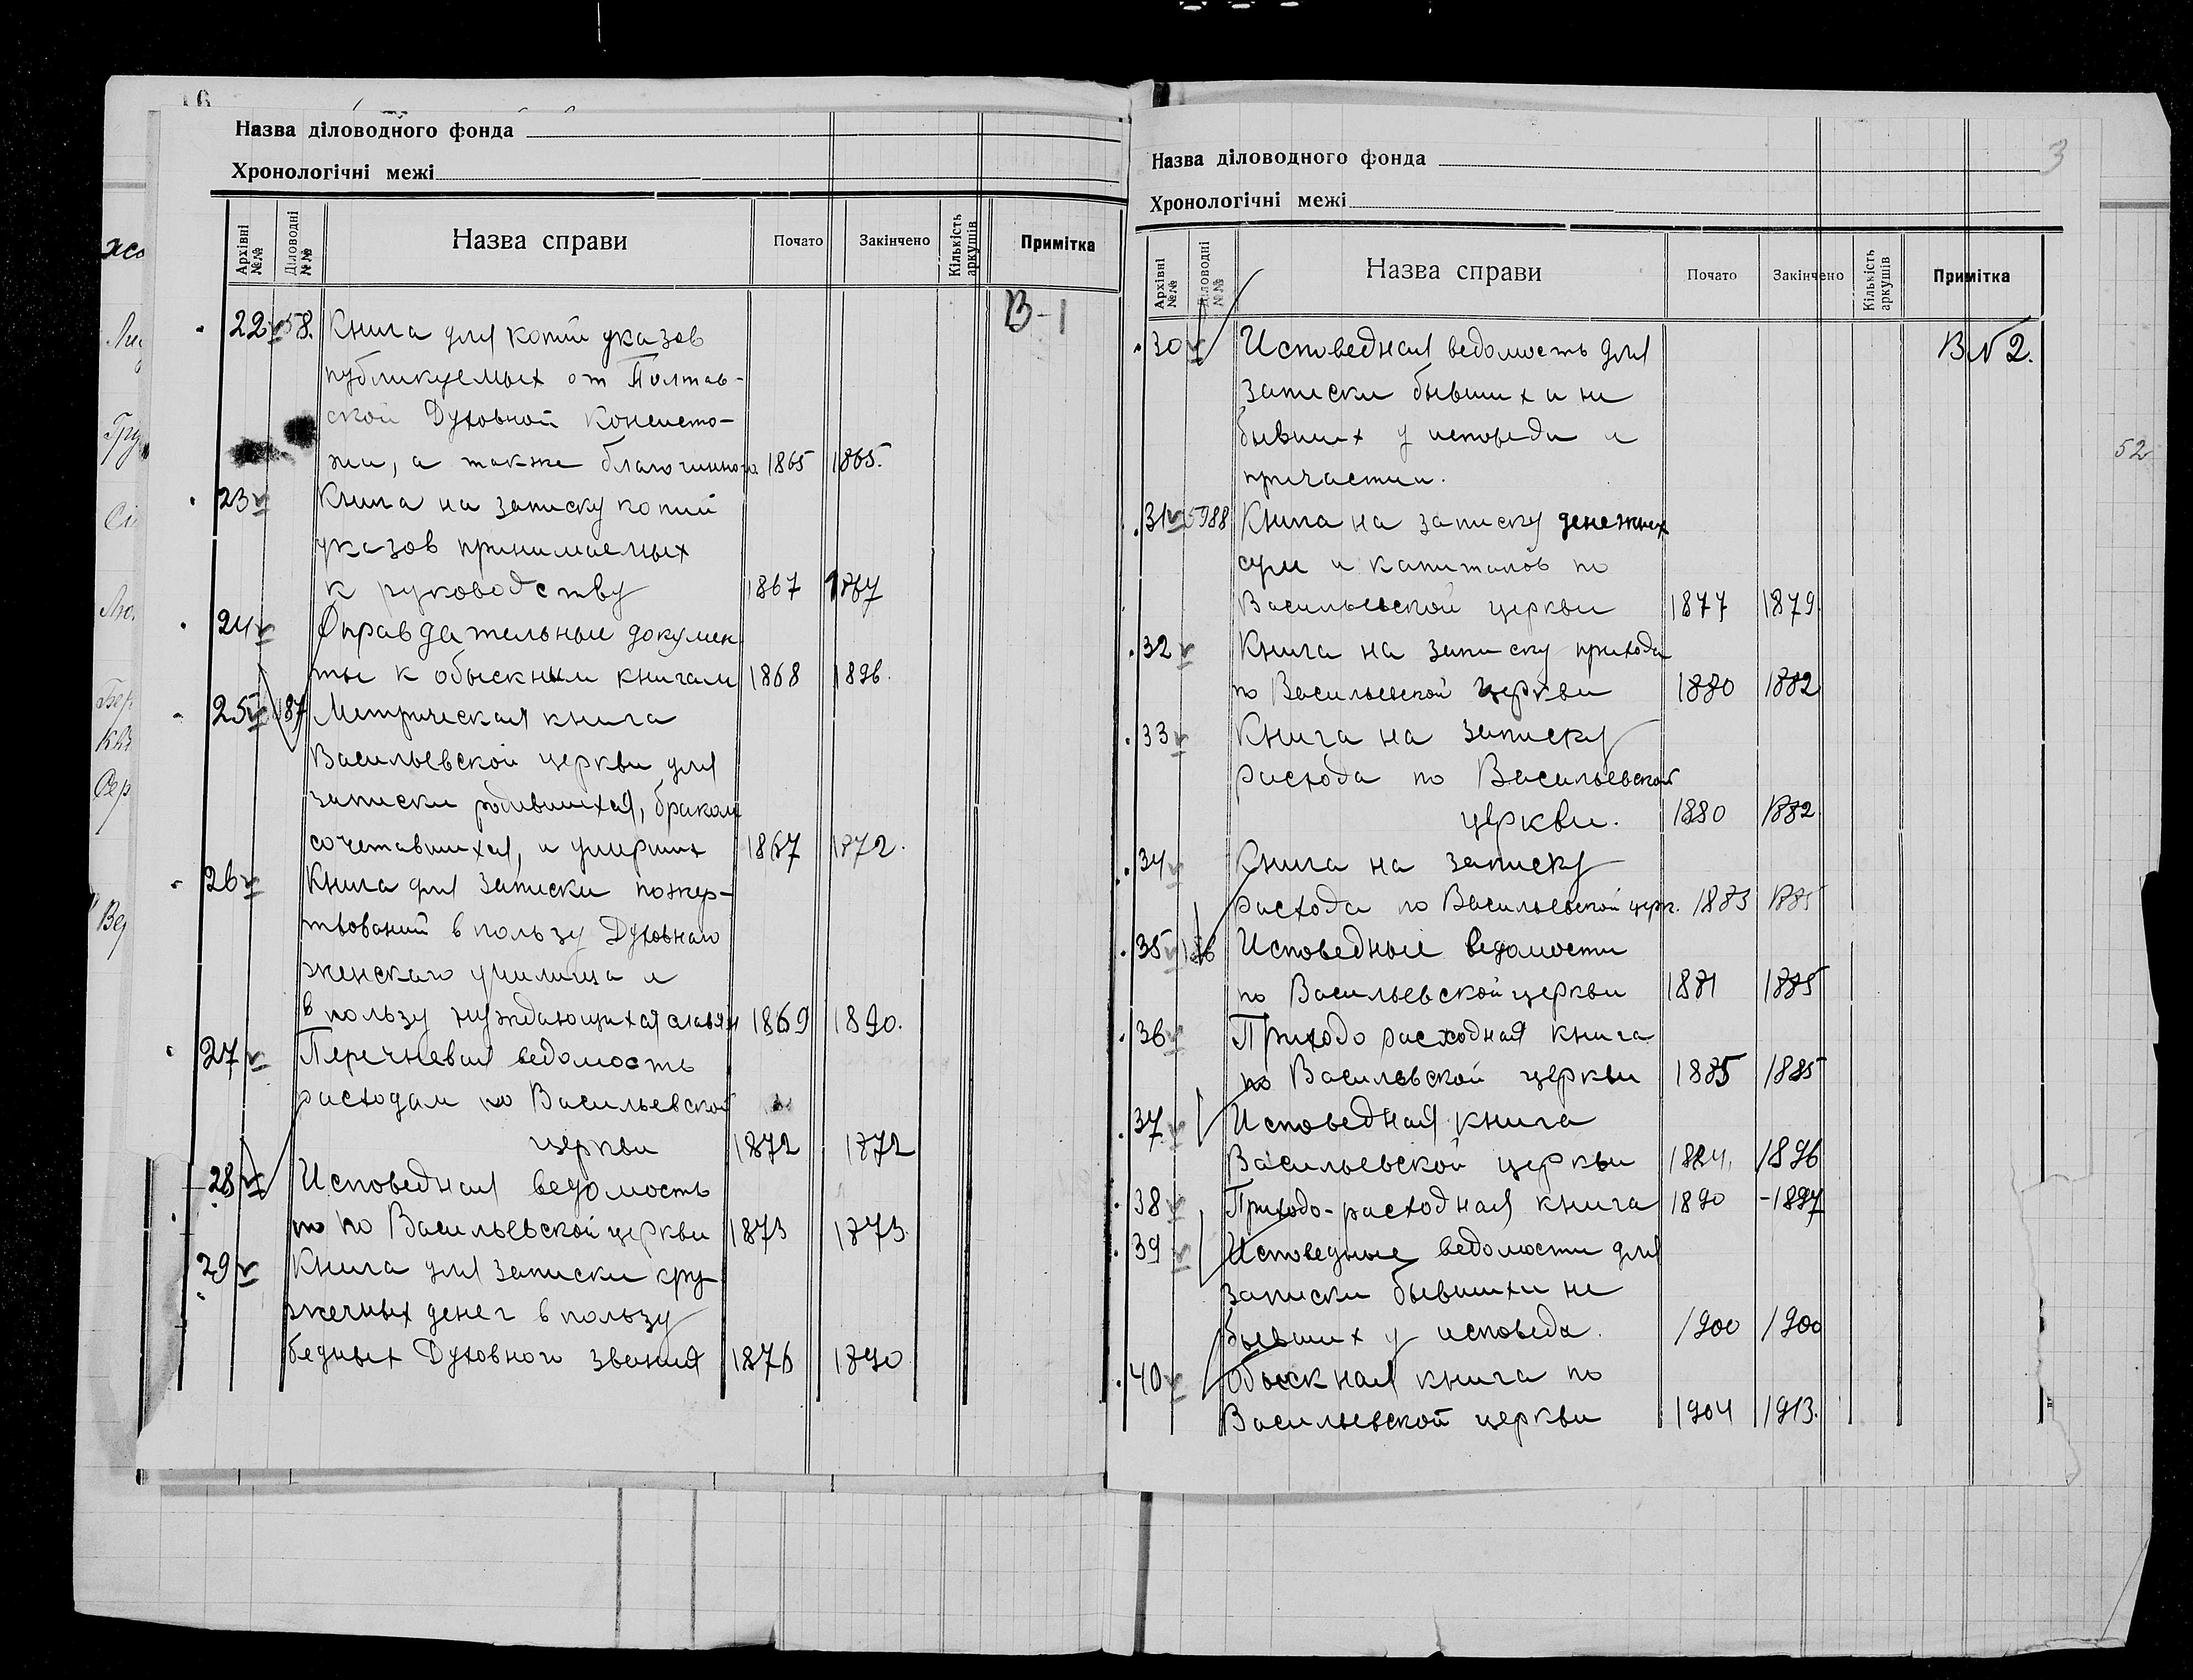 Назва діловодного фонда
Хронологічні межі
Архівні №№
Діловодні №№
Назва справи
Почато
Закінчено
Кількість аркушів
Примітка
В-1
22 58. Книга для копий указов
публикуемых от Полтав-
ской Духовной Консисто-
жи, а также благочинного 1865 1865.
23 Книга на записку копий
указов принимаемых
к руководству 1867 1867
24 Оправдательные докумен
ты к обыскным книгам 1868 1896.
25 187 Метрическая книга
Васильевской церкви для
записки родившихся, браком
сочетавшихся, и умерших 1867 1872.
26 Книга для записки пожер-
твований в пользу Духовнаго
женскаго училища и
в пользу нуждающихся славян 1869 1890.
27 Перечневая ведомость
расходам по Васильевской
церкви 1872 1872
28 Исповедная ведомость
по по Васильевской церкви 1873 1873.
29 Книга для записки кру-
жечных денег в пользу
бедных Духовного звания 1876 1890
3
Назва діловодного фонда
Хронологічні межі
Архівні №№
Діловодні №№
Назва справи
Почато
Закінчено
Кількість аркушів
Примітка
30 Исповедная ведомость для В N 2.
записки бывших и не
бывших у исповеди и
причастии.
31 5988 Книга на записку денежных
сум и капиталов по
Васильевской церкви 1877 1879.
32 Книга на записку прихода
по Васильевской церкви 1880 1882
33 Книга на записку
расхода по Васильевской
церкви. 1880 1882.
34 Книга на записку
расхода по Васильевской церк. 1883 1885
35 Исповедные ведомости
по Васильевской церкви 1881 1885
36 Приходо расходная книга
по Васильвской церкви 1885 1885
37. Исповедная книга
Васильевской церкви 1896
38 Приходо-расходная книга 1890 -1897
39 Исповедные ведомости для
записки бывших и не
бывших у исповеди. 1900 1900
40 Обыскная книга по
Васильевской церкви 1904 1913.
52